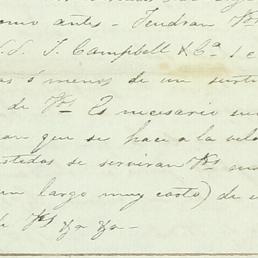 como antes - Tendran Vs
S.S. J. Campbell & Ca 1 c
as ó menos de un surti
de Vs Es necesario
an que se hace a la vela
stedes se serviran Vs
un largo muy corto) de
de Vs &a &a -